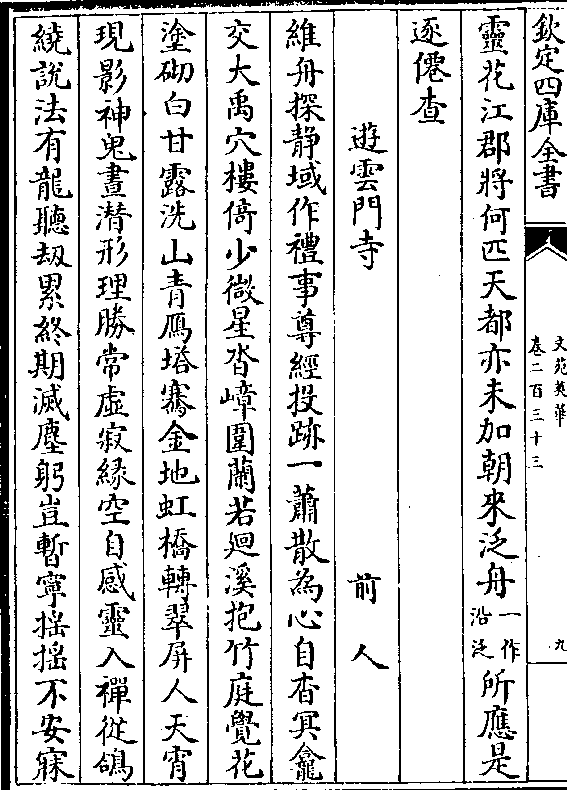 欽定四庫全書
文苑英華
卷二百三十三
九
靈花江郡將何匹天都亦未加朝來泛舟一作沿泛所應是
逐僊查
遊雲門寺 前人
維舟探静域作禮事尊經投跡一蕭散為心自杳冥龕
交大禹穴樓倚少微星沓嶂圍蘭若廻溪抱竹庭覺花
塗砌白甘露洗山青鴈塔騫金地虹橋轉翠屏人天宵
現影神鬼晝潜形理勝常虚寂緣空自感靈入禪從鴿
繞說法有龍聽刼累終期滅塵躬豈暫寧揺揺不安寐